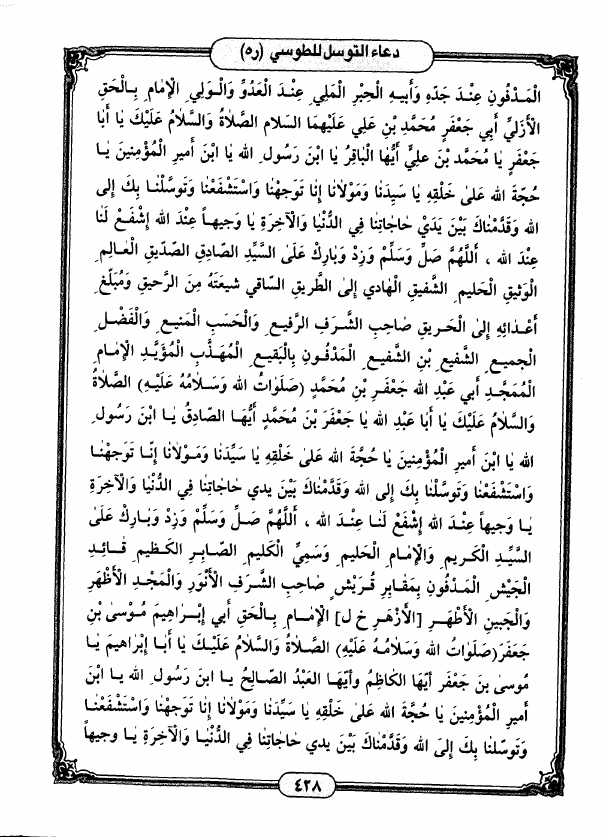 دعاء التوسل للطوسي (ره)
الْمَدْفُونِ عِنْدَ جَدِّهِ وَأَبيهِ الْحِبْرِ الْمَلِي عِنْدَ الْعَدُوِّ وَالْوَلِي الْإِمَامِ بِالْحَقِ
الْأَزَلِيِّ أَبي جَعْفَرٍ مُحَمَّدِ بْنِ عَلِي عَلَيْهِمَا السَلام الصَّلَاةُ وَالسَّلَامُ عَلَيْكَ يَا أَبَا
جَعْفَرٍ يَا مُحَمَّد بْنَ عَلِيٍّ أَيُّهَا الْبَاقِرُ يَا ابْنَ رَسُولِ الله يَا ابْنَ أَميرِ الْمُؤْمِنينَ يَا
حُجَّةَ الله عَلَىٰ خَلْقِهِ يَا سَيِّدَنَا وَمَوْلَانَا إِنَا تَوَجَّهْنَا وَاسْتَشْفَعْنَا وَتَوَسَّلْنَا بِكَ إِلى
الله وَقَدَّمْنَاكَ بَيْنَ يَدَيْ حَاجَاتِنَا فِي الدُّنْيَا وَالْآخِرَةِ يَا وَجيهاً عِنْدَ الله إِشْفَعْ لَنَا
عِنْدَ الله ، أَللَّهُمَّ صَلِّ وَسَلِّمْ وَزِدْ وَبَارِكْ عَلَىٰ السَّيِّدِ الصَّادِقِ الصِّدّيقِ الْعَالِمِ
الْوَثيقِ الْحَليمِ الشَّفيقِ الْهَادي إِلىٰ الطَّريقِ السَّاقي شيعَتَهُ مِنَ الرَّحيقِ وَمُبَلِّغِ
أَعْدَائِهِ إِلىٰ الْحَريقِ صَاحِبِ الشَّرَفِ الرَّفيعِ وَالْحَسَبِ الْمَنيعِ وَالْفَضْلِ
الْجَميعِ الشَّفيعِ بْنِ الشَّفيعِ الْمَدْفُونِ بِالْبَقيعِ الْمُهَذَّبِ الْمُؤَيَّدِ الْإِمَامِ
الْمُمَجَّدِ أَبي عَبْدِ الله جَعْفَرِ بْنِ مُحَمَّدٍ (صَلَوَاتُ الله وَسَلَامُهُ عَلَيْهِ) الصَّلَاةُ
وَالسَّلَامُ عَلَيْكَ يَا أَبَا عَبْدِ الله يَا جَعْفَرَ بْنَ مُحَمَّدٍ أَيُّهَا الصَّادِقُ يَا ابْنَ رَسُولِ
الله يَا ابْنَ أَميرِ الْمُؤْمِنينَ يَا حُجَّةَ الله عَلىٰ خَلْقِهِ يَا سَيِّدَنَا وَمَوْلَانَا إِنَّا تَوَجَّهْنَا
وَاسْتَشْفَعْنَا وَتَوَسَّلْنَا بِكَ إِلى الله وَقَدَّمْنَاكَ بَيْنَ يدي حَاجَاتِنَا فِي الدُّنْيَا وَالْآخِرَةِ
يَا وَجيهاً عِنْدَ الله إِشْفَعْ لَنَا عِنْدَ الله ، أَللَّهُمَّ صَلِّ وَسَلِّمْ وَزِدْ وَبَارِكْ عَلىٰ
السَّيِّدِ الْكَريمِ وَالْإِمَامِ الْحَليمِ وَسَمِيِّ الْكَليمِ الصَّابِرِ الْكَظيمِ قَائِدِ
الْجَيْشِ الْمَدْفُونِ بِمَقَابِرِ قُرَيْشٍ صَاحِبِ الشَّرَفِ الْأَنْوَرِ وَالْمَجْدِ الْأَظْهَرِ
وَالْجَبينِ الْأَطْهَرِ [الْأَزْهَرِ خ ل] الْإِمَامِ بِالْحَقِ أَبي إِبْرَاهيمَ مُوسَىٰ بْنِ
جَعْفَرَ(صَلَوَاتُ الله وَسَلَامُهُ عَلَيْهِ) الصَّلَاةُ وَالسَّلَامُ عَلَيْكَ يَا أَبَا إِبْرَاهيمَ يَا
مُوسىٰ بنَ جَعْفَر أيّهَا الكَاظِمُ وَأيّهَا العَبْدُ الصَّالِحُ يَا ابنَ رَسُولِ الله يَا ابْنَ
أَميرِ الْمُؤْمِنينَ يَا حُجَّةَ الله عَلىٰ خَلْقِهِ يَا سَيِّدَنَا وَمَوْلَانَا إِنَا تَوَجَهْنَا وَاسْتَشْفَعْنَا
وَتَوسّلنَا بِكَ إِلَى الله وَقَدَّمْنَاكَ بَيْنَ يدي حَاجَاتِنَا فِي الدُّنْيَا وَالْآخِرَةِ يَا وَجيهاً
٤٣٨